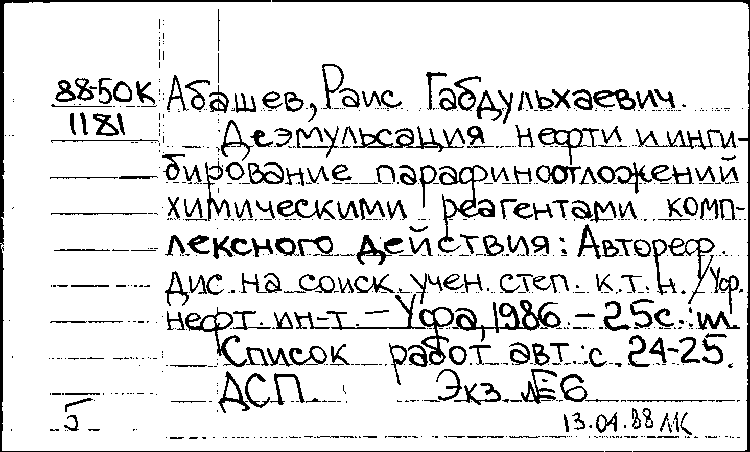 88-50К Абашев, Раис Габдульхаевич.
1181 Деэмульсация нефти и инги-
бирование парафиноотложений
химическими реагентами комп-
лексного действия: Автореф.
дис. на соиск. учен. степ. к.т.н. / Уф.
нефт. ин-т. – Уфа, 1986. – 25с.: ил.
Список работ авт.: с. 24-25.
ДСП. Экз. №6
5 13.04.88 МК